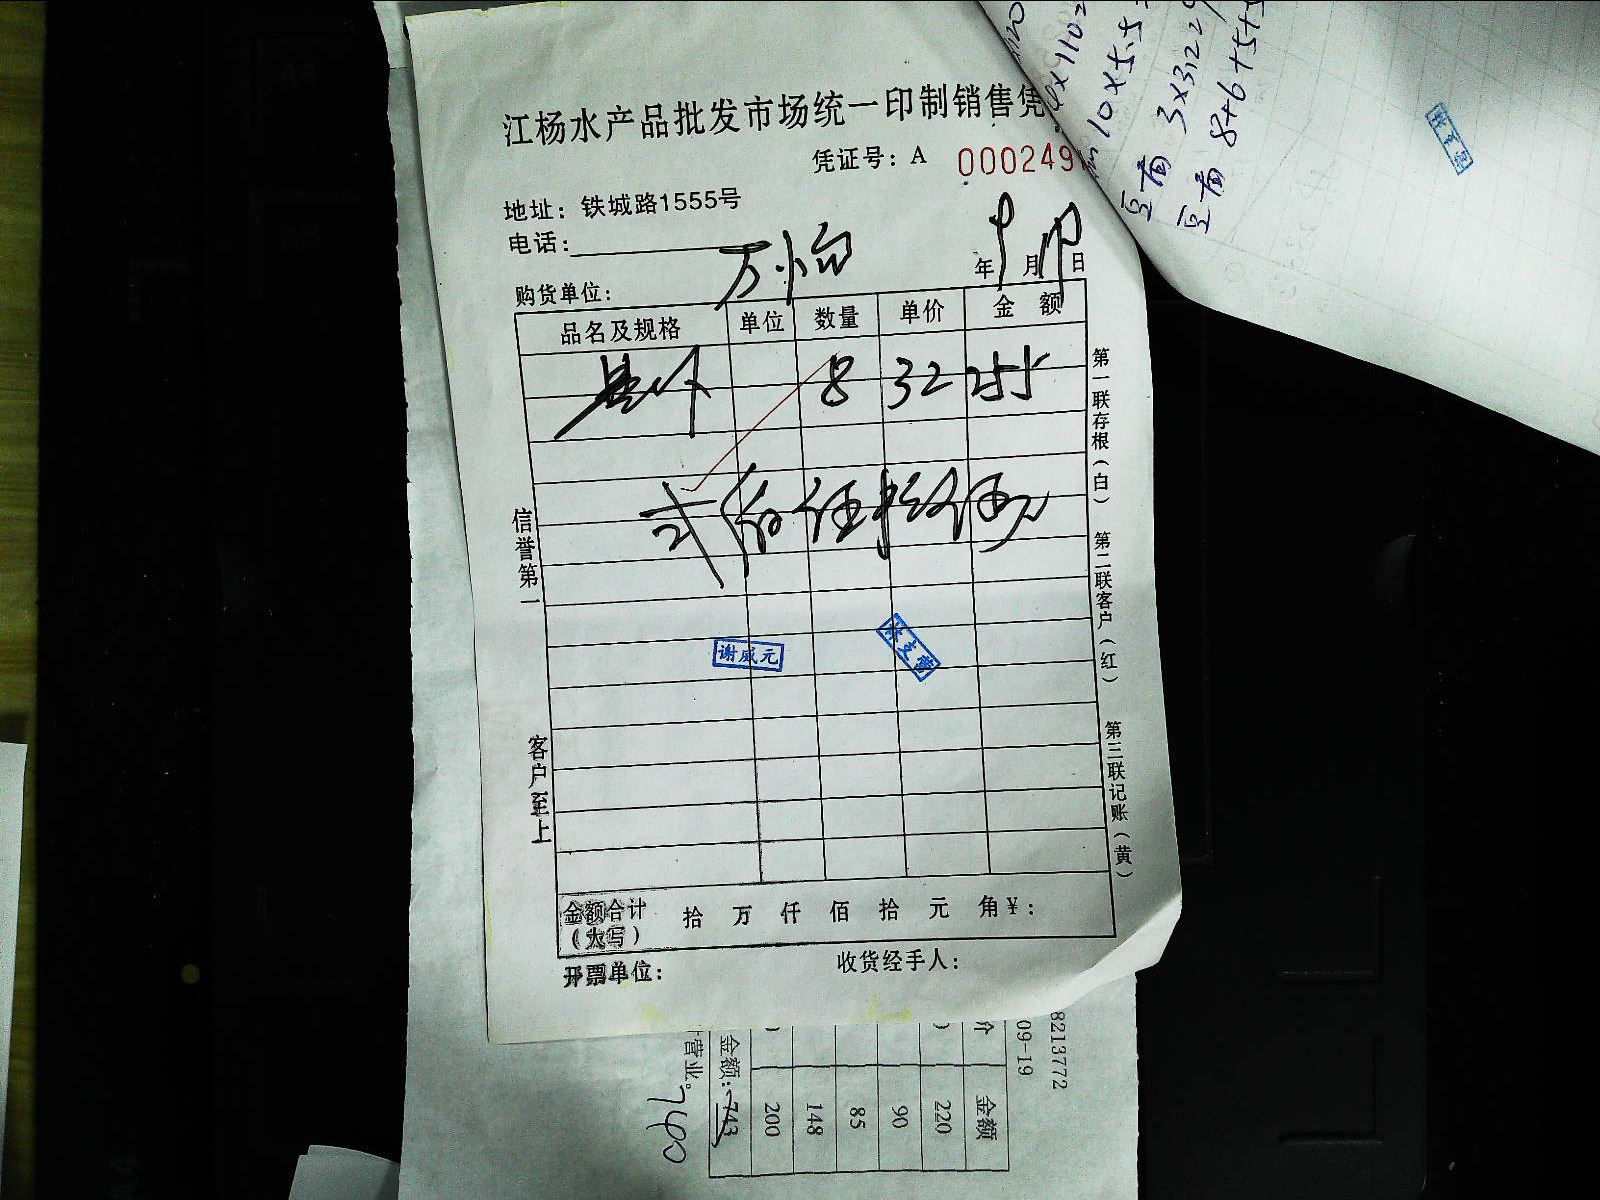 江杨水产品批发市场统一印制销售凭
凭证号：A 000249
地址：铁城路1555号
电话：
购货单位： 万小白 年 9 月 19 日
品名及规格 单位 数量 单价 金 额
8 32 255
弍佰伍拾伍元
谢威元
林支营
信誉第一
客户至上
第一联存根（白） 第二联客户（红） 第三联记账（黄）
金额合计（大写） 拾 万 仟 佰 拾 元 角 ¥：
开票单位： 收货经手人：
10×5.5
豆角 3×3.122
豆角 8+6+5+5
林支营
8213772
09-19
价 金额
220
90
85
148
200
金额：743
营业。
740